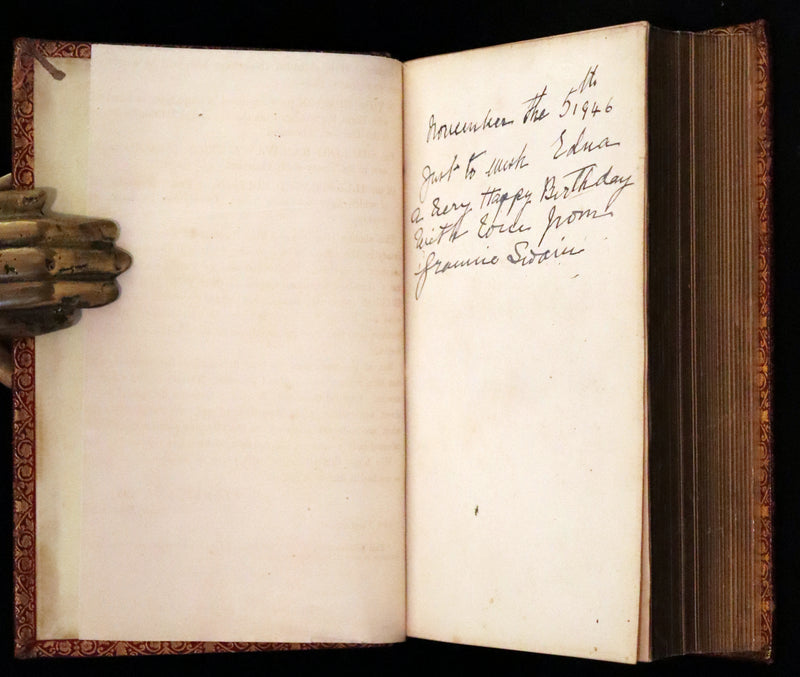 November the 5th 1946
Just to wish Edna
a Very Happy Birthday
With Love from
Grannie Swain